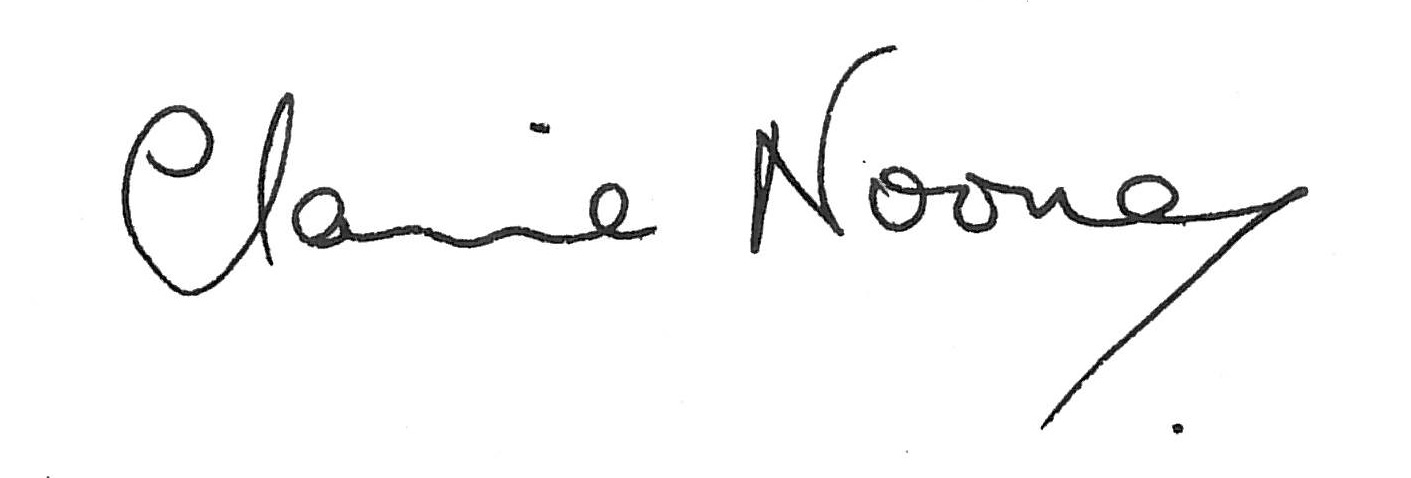 Claire Nooney